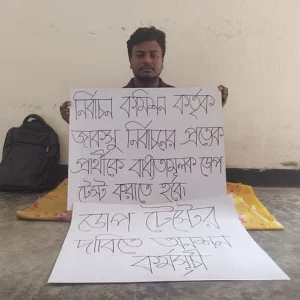 নির্বাচন কমিশন কর্তৃক
নির্বাচনের প্রত্যেক
প্রার্থীকে বাধ্যতামূলক ডোপ
টেস্ট করাতে হবে।
ডোপ টেস্টের
দাবিতে অনশন
কর্মসূচি